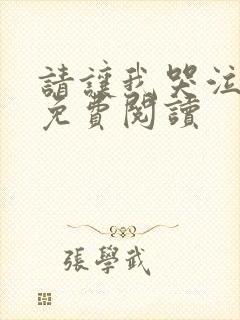 請讓我哭泣
免費閱讀
張學武